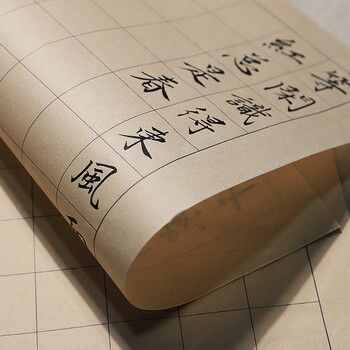 等閒識得東風
紅总是春